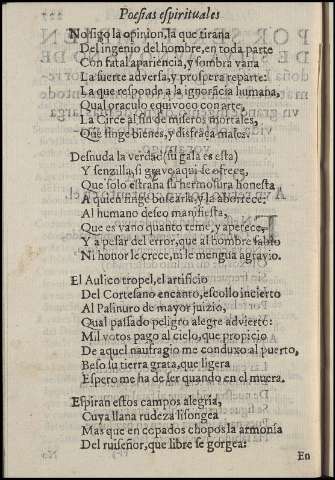 Poesias espirituales
No sigo la opinion, la que tirana
Del ingenio del hombre, en toda parte
Con fatal apariencia, y sombra vana
La suerte adversa, y prospera reparte:
La que responde a la ignorãcia humana,
Qual oraculo equivoco con arte,
La Circe al fin de miseros mortales,
Que finge bienes, y disfraça males.
Desnuda la verdad (su gala es esta)
Y senzilla, si grave, aqui se ofrece,
Que solo estraña su hermosura honesta
A quien finge buscarla, y la aborrece:
Al humano deseo manifiesta,
Que es vano quanto teme, y apetece,
Y a pesar del error, que al hombre sabio
Ni honor le crece, ni le mengua agravio.
El Aulico tropel, el artificio
Del Cortesano encanto, escollo incierto
Al Palinuro de mayor juizio,
Qual passado peligro alegre advierte:
Mil votos pago al cielo, que propicio
De aquel naufragio me conduxo al puerto,
Beso su tierra grata, que ligera
Espero me ha de ser quando en el muera.
Espiran estos campos alegria,
Cuya llana rudeza lisongea
Mas que en copados chopos la armonia
Del ruiseñor, que libre se gorgea:
En